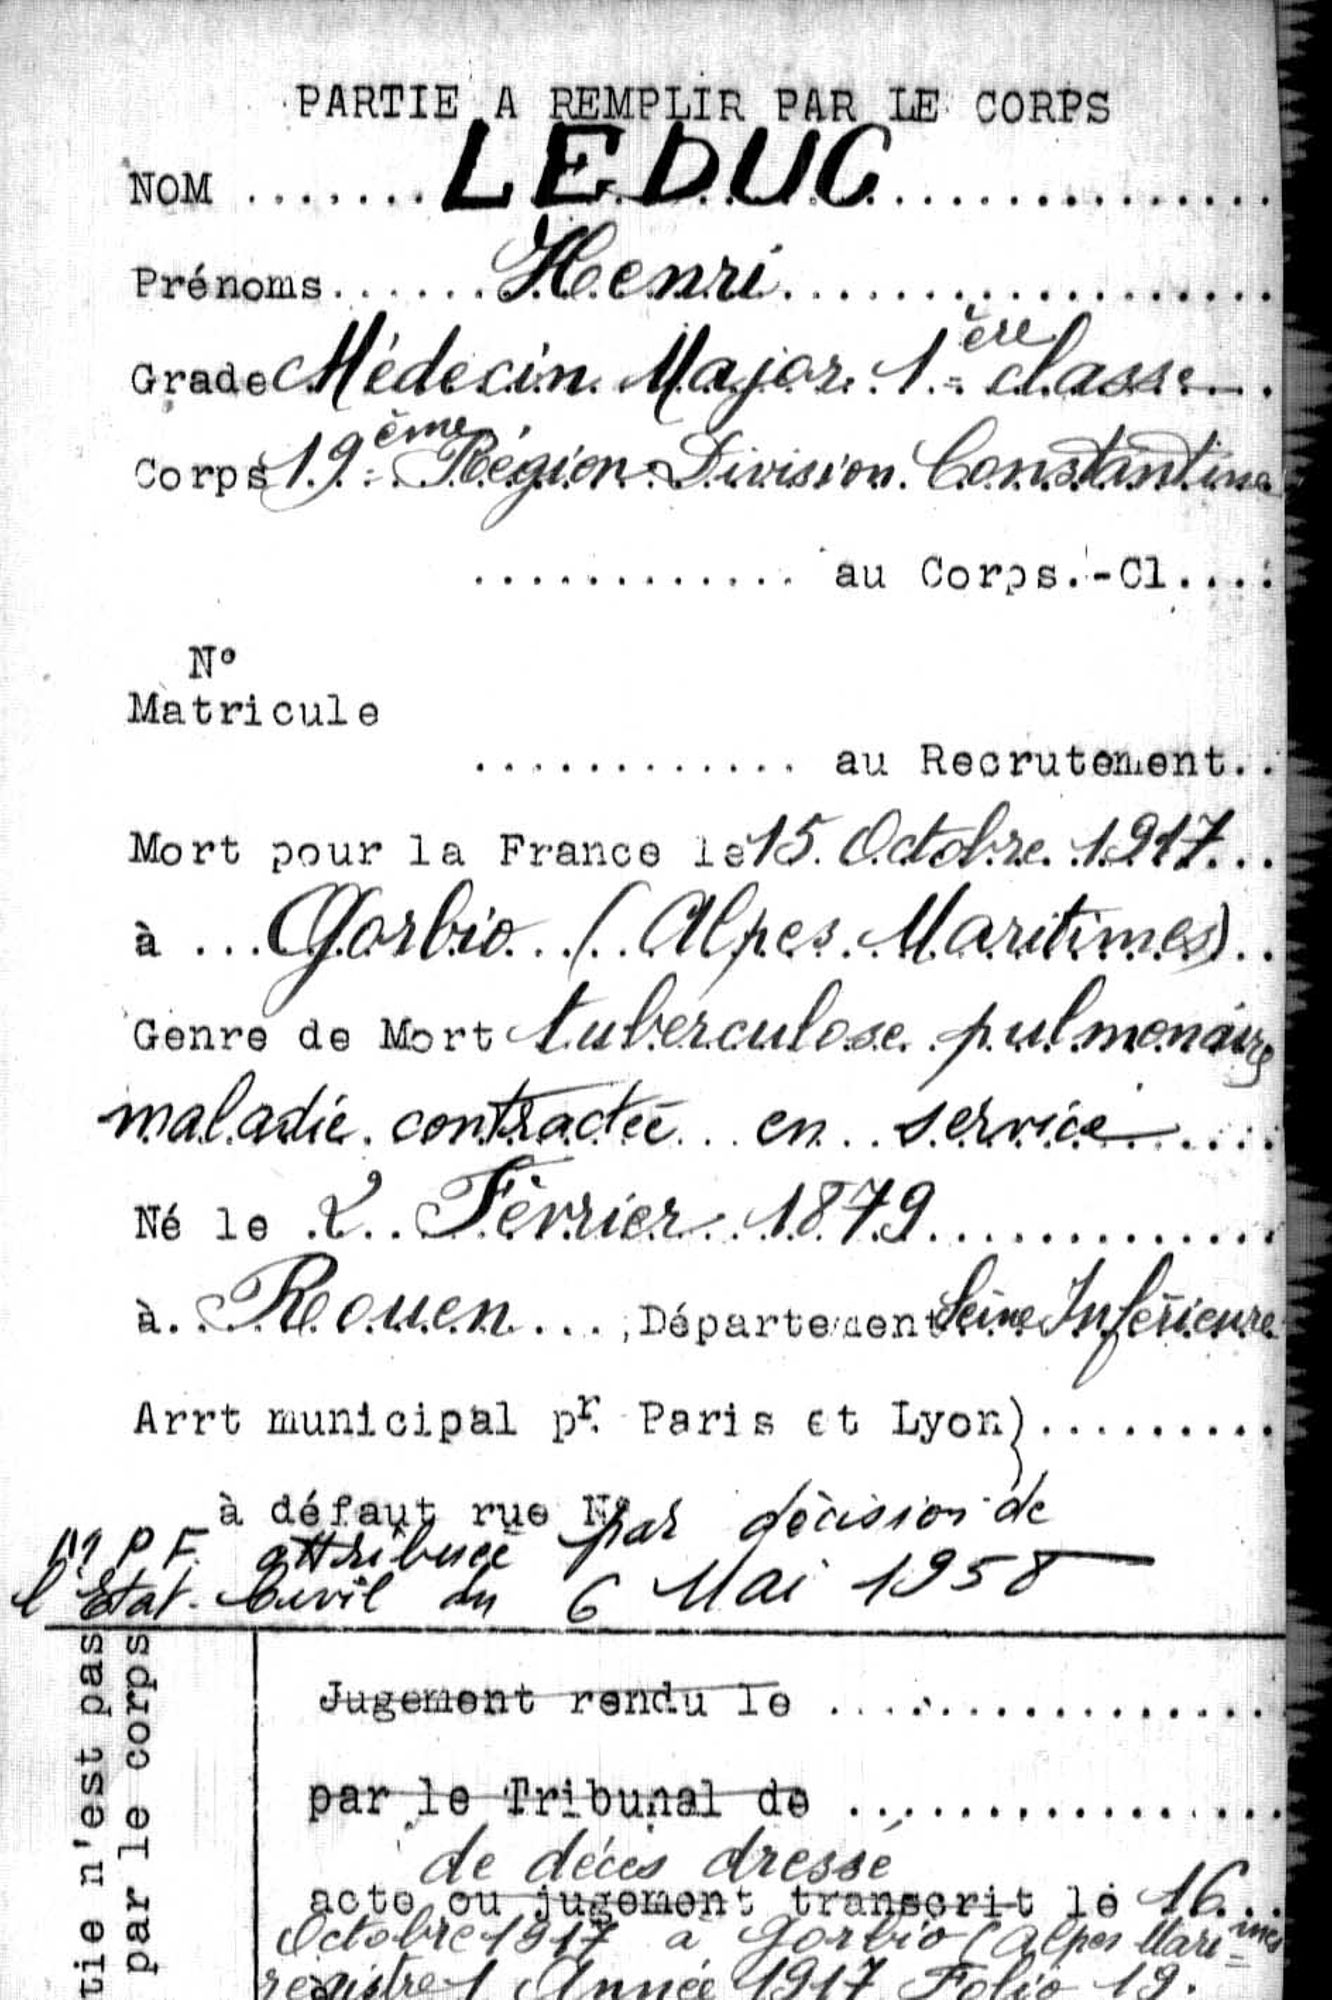 PARTIE A REMPLIR PAR LE CORPS
NOM ....... LEDUC ...............
Prénoms ...... Henri ...................
Grade Médecin Major 1ère classe
Corps 19ème Région Division Constantine
............. au Corps.-Cl....
N°
Matricule
............. au Recrutement..
Mort pour la France le 15 Octobre 1917...
à ... Gorbio (Alpes Maritimes)..
Genre de Mort tuberculose pulmonaire
maladie contractée en service
Né le 2 Février 1879..............
à. Rouen ...., Département Seine Inférieure
Arrt municipal pr. Paris et Lyon).........
à défaut rue N° par décision de
M P F. attribuée
l'Etat-Civil du 6 Mai 1958
Jugement rendu le .................
par le Tribunal de .................
de décès dressé
acte ou jugement transcrit le 16..
Octobre 1917 à Gorbio (Alpes Marimes
registre 1 Année 1917 Folio 19.
tie n'est pas
par le corps